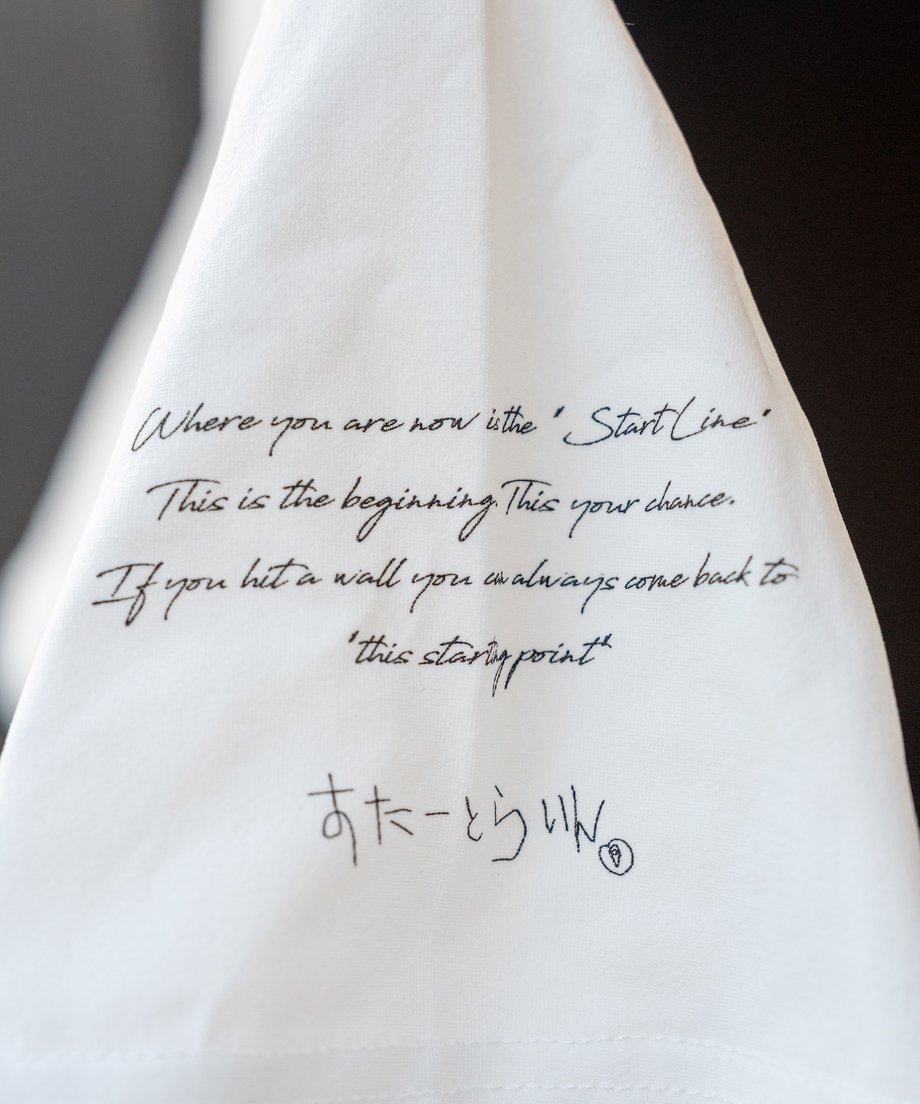 Where you are now is the "Start Line"
This is the beginning. This your chance.
If you hit a wall you can always come back to
"this starting point"
すたーとらいん